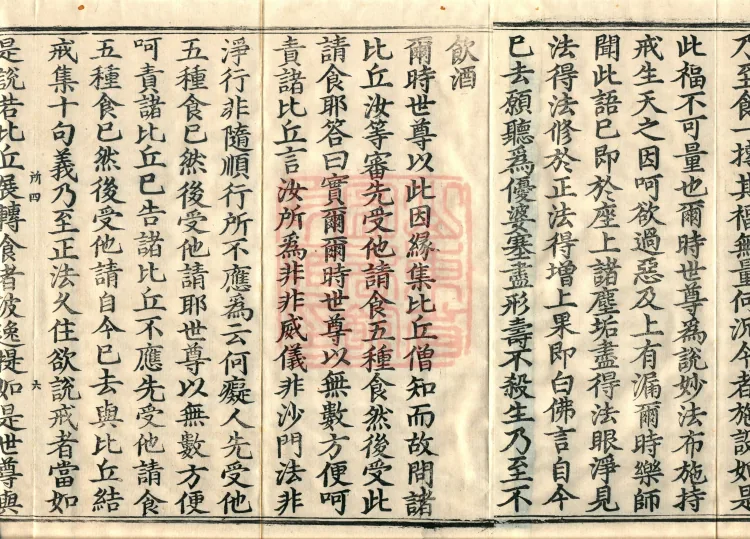 乃至食一摶其福無量何況今者施設如是
此福不可量也爾時世尊爲說妙法布施持
戒生天之因呵欲過惡及上有漏爾時樂師
聞此語巳即於座上諸塵垢盡得法眼淨見
法得法修於正法得增上果即白佛言自今
巳去願聽爲優婆塞盡形壽不殺生乃至不
飲酒
爾時世尊以此因緣集比丘僧知而故問諸
比丘汝等審先受他請食五種食然後受此
請食耶答曰實爾爾時世尊以無數方便呵
責諸比丘言汝所爲非非威儀非沙門法非
淨行非隨順行所不應爲云何癡人先受他
五種食巳然後受他請耶世尊以無數方便
呵責諸比丘巳告諸比丘不應先受他請食
五種食巳然後受他請自今巳去與比丘結
戒集十句義乃至正法久住欲說戒者當如
所四 六
是說若比丘展轉食者波逸提如是世尊與